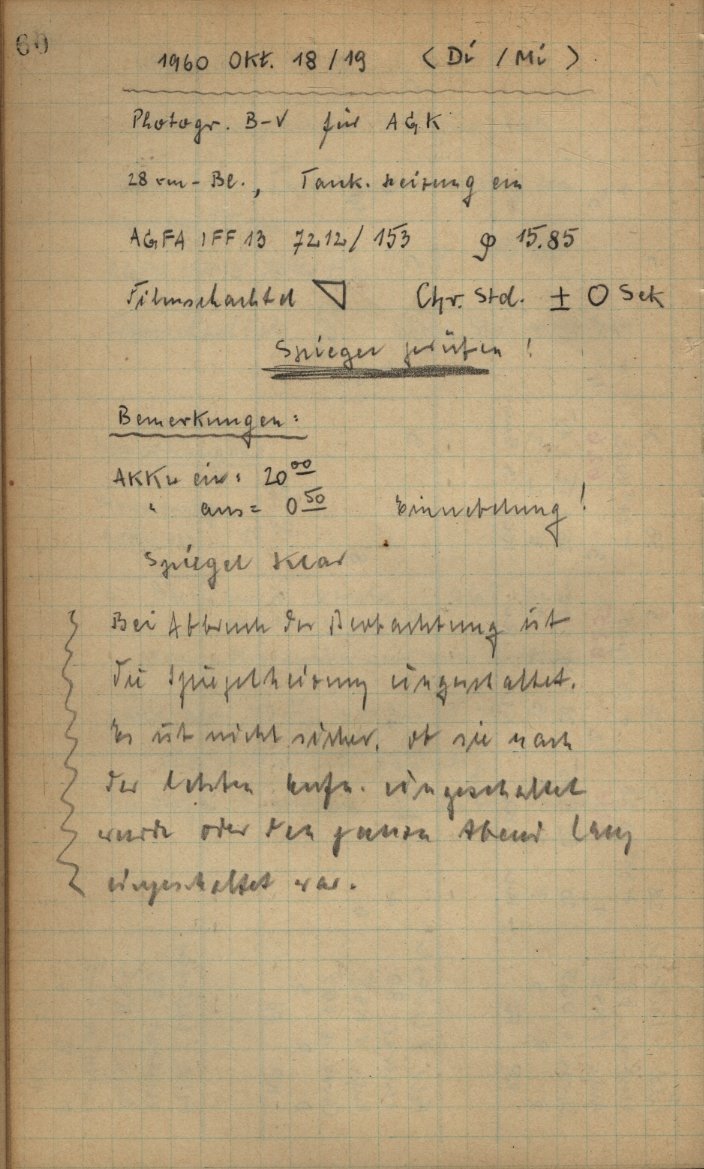 60
1960 Okt. 18/19 (Di / Mi)
Photogr. B-V für AGK
28 cm-Bl., Tank. heizung ein
AGFA IFF 13 7212/153 φ 15.85
Filmschachtel Chr. Std. ± 0 Sek
Spiegel prüfen!
Bemerkungen:
Akku ein: 20 00
" aus = 0 50 Einnebelung!
Spiegel klar
Bei Abbruch der Beobachtung ist
die Spiegelheizung eingeschaltet.
Es ist nicht sicher, ob sie nach
der letzten Aufn. eingeschaltet
wurde oder den ganzen Abend lang
eingeschaltet war.